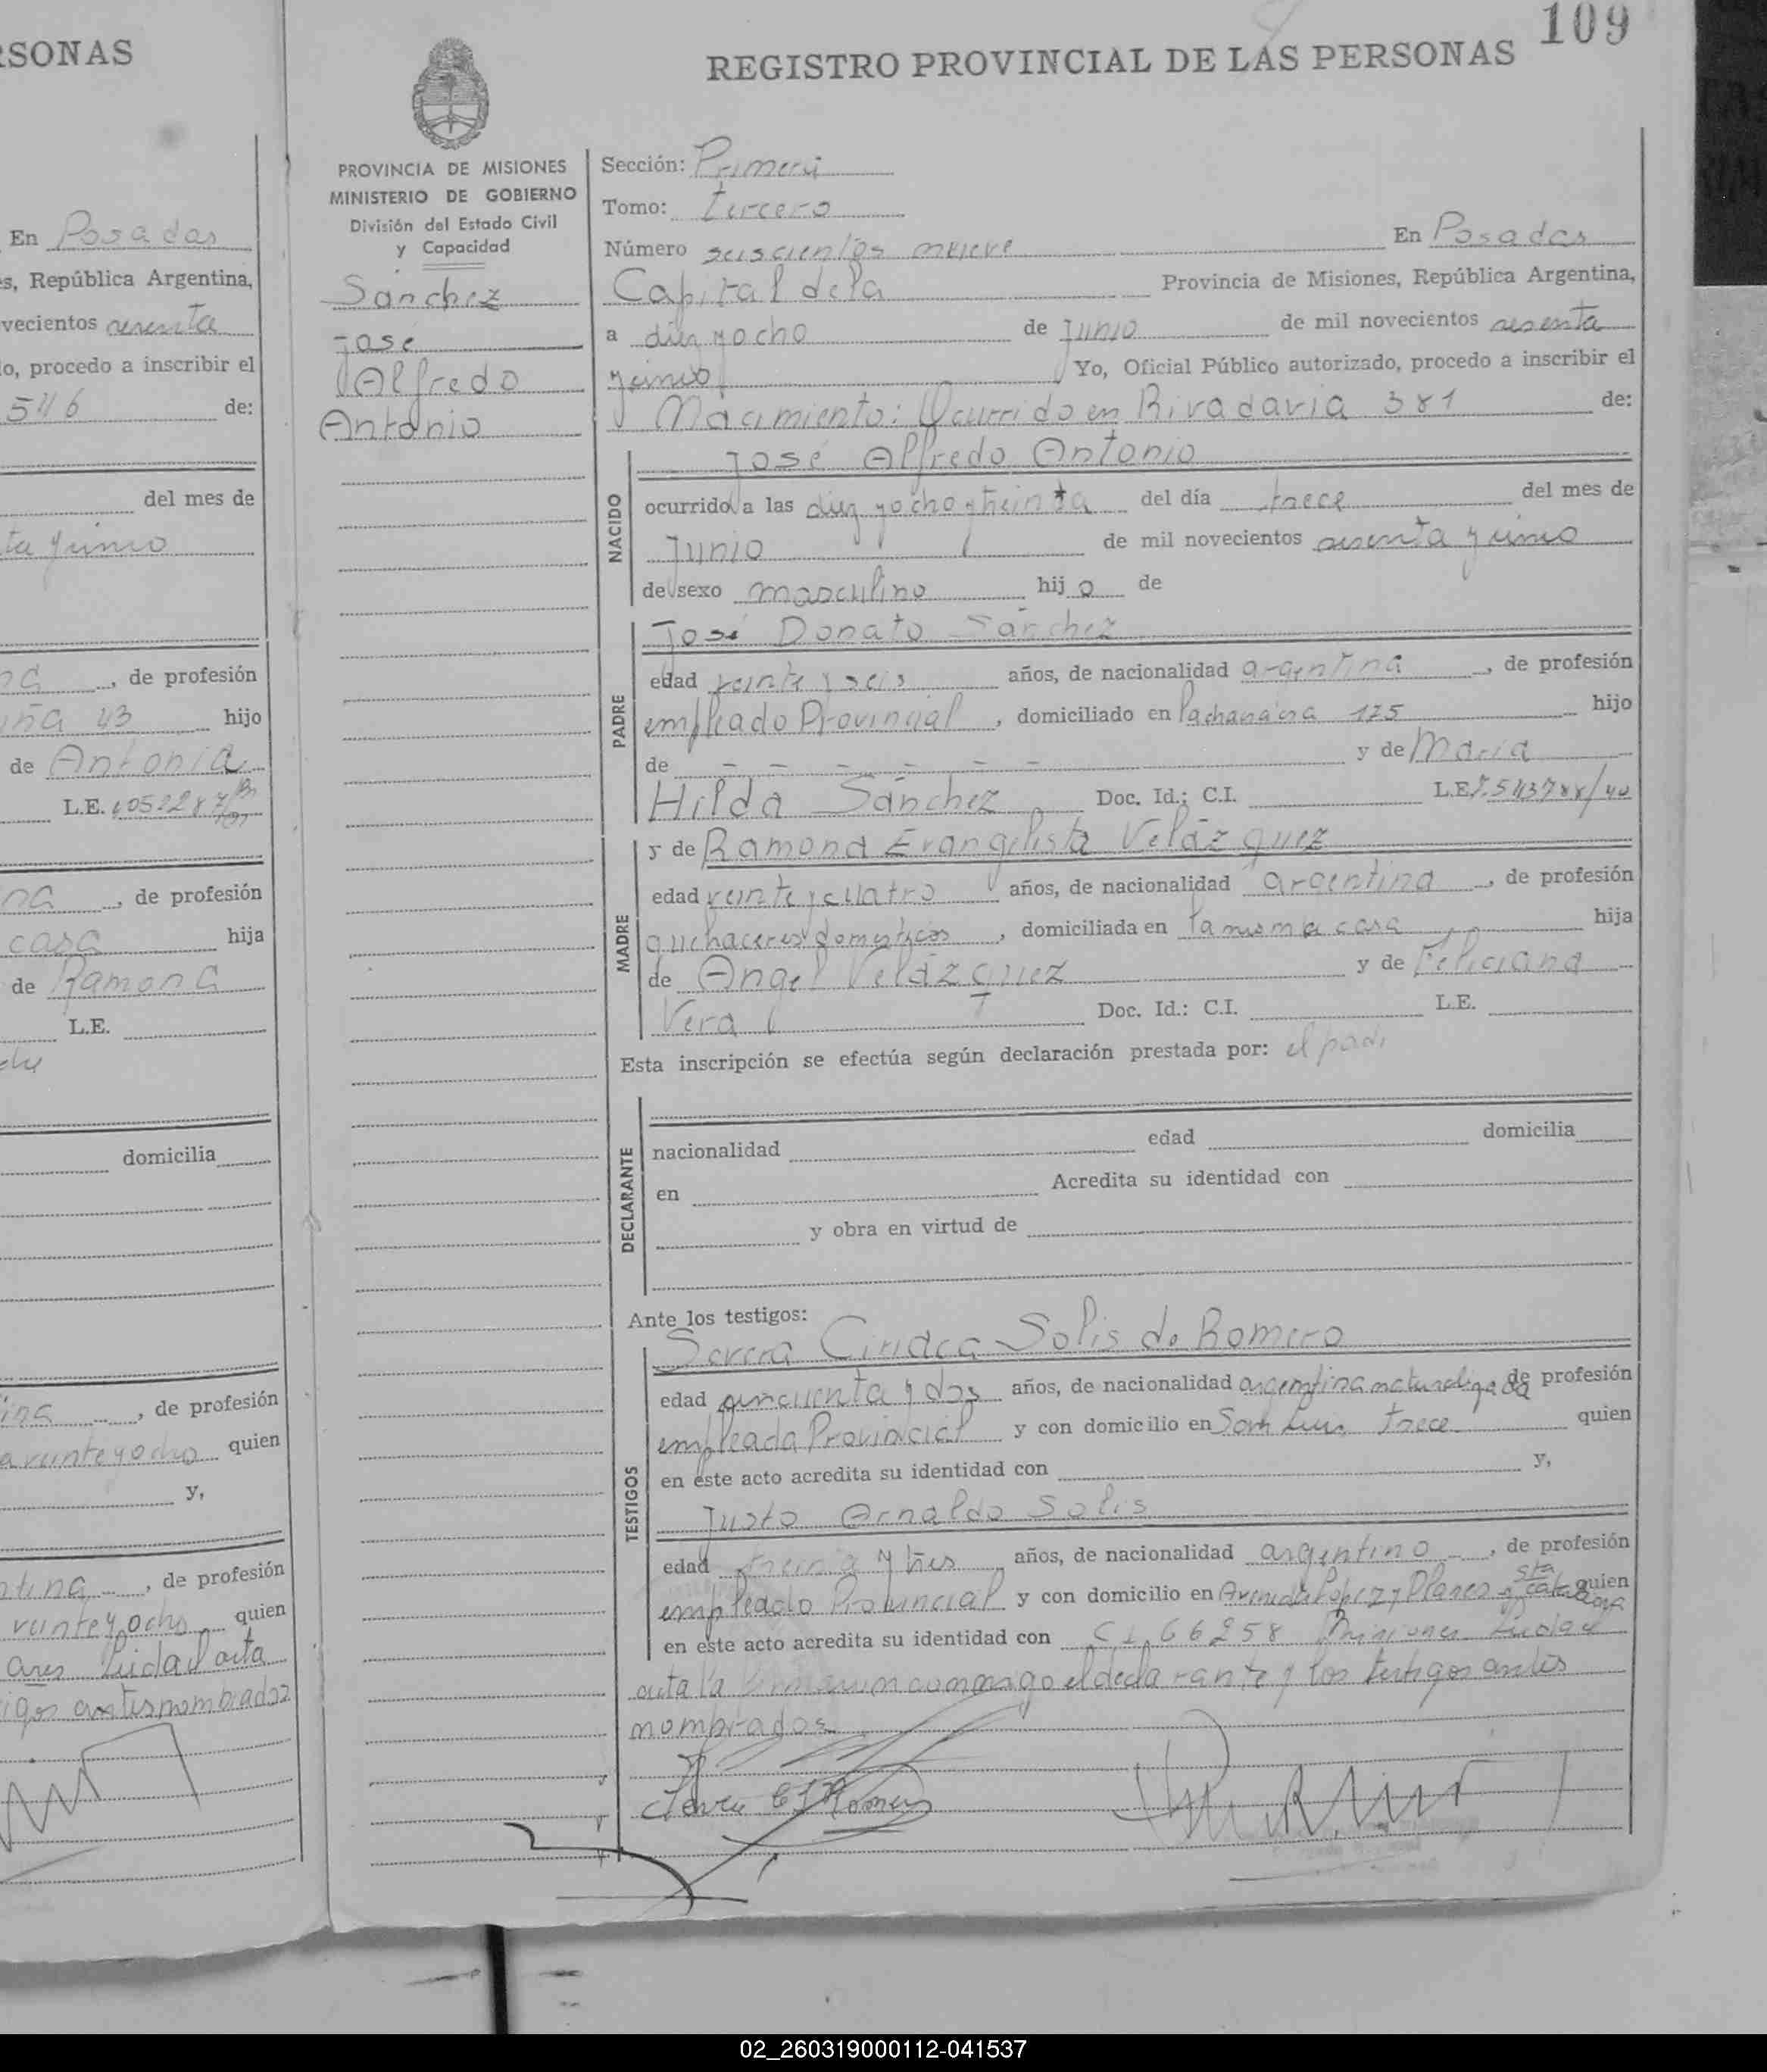 RSONAS
En Posadas
s, República Argentina,
vecientos sesenta
o, procedo a inscribir el
546 de:
del mes de
ta y uno
na, de profesión
43 hijo
de Antonia
L.E.
na, de profesión
casa hija
de Ramona
L.E.
domicilia
ina, de profesión
a veinte y ocho quien
y,
ntina, de profesión
veinte y ocho quien
ares Leida el acta
igos antes nombrados
109
REGISTRO PROVINCIAL DE LAS PERSONAS
PROVINCIA DE MISIONES
MINISTERIO DE GOBIERNO
División del Estado Civil
y Capacidad
Sánchez
José
Alfredo
Antonio
Sección: Primera
Tomo: tercero
Número seiscientos nueve En Posadas
Capital de la Provincia de Misiones, República Argentina,
a diez y ocho de Junio de mil novecientos sesenta
y uno Yo, Oficial Público autorizado, procedo a inscribir el
Nacimiento: Ocurrido en Rivadavia 381 de:
NACIDO
José Alfredo Antonio
ocurrido a las diez y ocho y treinta del día trece del mes de
Junio de mil novecientos sesenta y uno
de sexo masculino hijo de
PADRE
José Donato Sánchez
edad veinte y seis años, de nacionalidad argentina, de profesión
empleado Provincial, domiciliado en Pachanaera 175 hijo
de - - - - - - y de María
Hilda Sánchez Doc. Id.: C.I. L.E. 7.543788/40
MADRE
y de Ramona Evangelista Velázquez
edad veinte y cuatro años, de nacionalidad argentina, de profesión
quehaceres domesticos, domiciliada en la misma casa hija
de Angel Velázquez y de Feliciana
Vera Doc. Id.: C.I. L.E.
Esta inscripción se efectúa según declaración prestada por: el padre
DECLARANTE
nacionalidad edad domicilia
en Acredita su identidad con
y obra en virtud de
Ante los testigos:
TESTIGOS
Ciriaca Solis de Romero
edad cincuenta y dos años, de nacionalidad argentina naturalizada de profesión
empleada Provincial y con domicilio en San Luis trece quien
en este acto acredita su identidad con y,
Justo Arnaldo Solis
edad treinta y tres años, de nacionalidad argentino, de profesión
empleado Provincial y con domicilio en Avenida López y Planes y Sta Catalina quien
en este acto acredita su identidad con C.I. 66258 Misiones Leida el
acta la firman conmigo el declarante y los testigos antes
nombrados
02_260319000112-041537